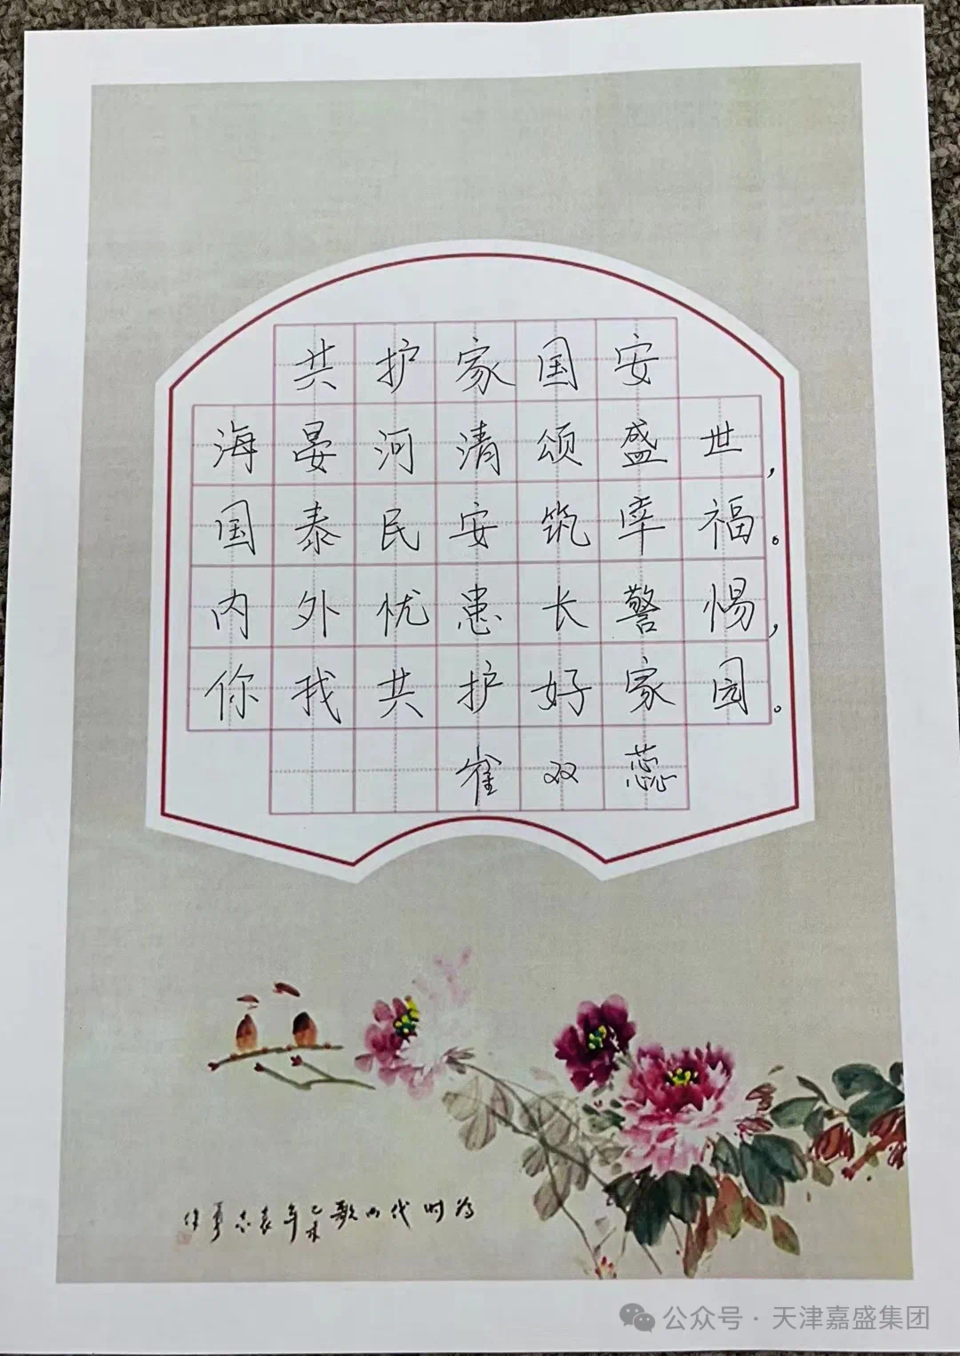 共护家国安
海晏河清颂盛世，
国泰民安筑幸福。
内外忧患长警惕，
你我共护好家园。
崔双蕊
为时代而歌 乙未年袁志勇作
公众号 · 天津嘉盛集团